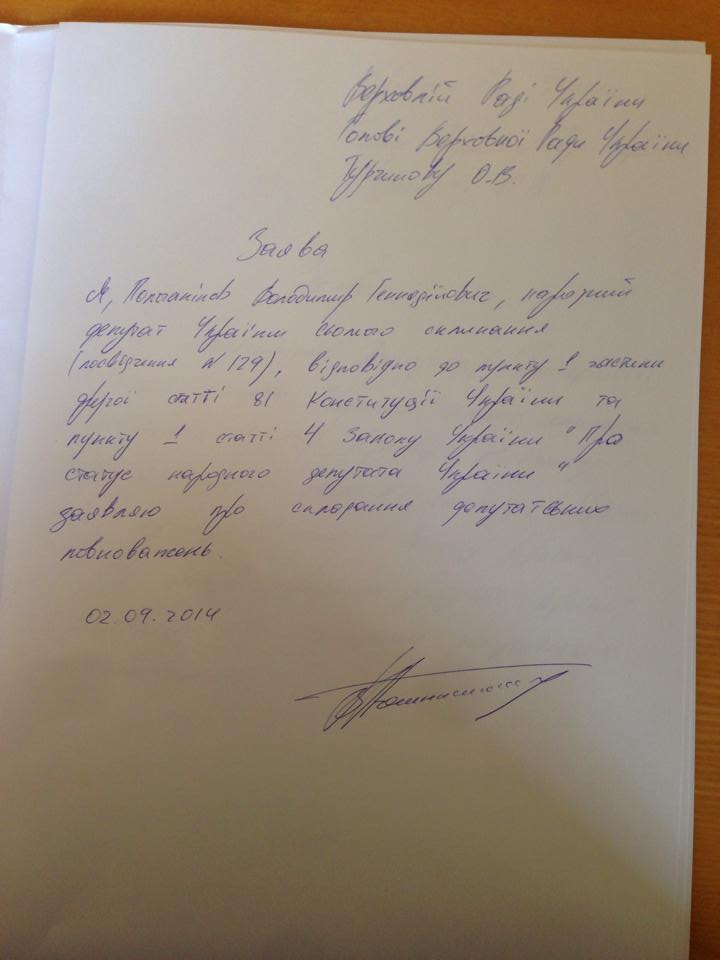 Верховній Раді України
Голові Верховної Ради України
Турчинову О.В.
Заява
Я, Полочанінов Володимир Геннадійович, народний
депутат України сьомого скликання
(посвідчення N 129), відповідно до пункту 1 частини
другої статті 81 Конституції України та
пункту 1 статті 4 Закону України "Про
статус народного депутата України"
заявляю про складання депутатських
повноважень.
02.09.2014